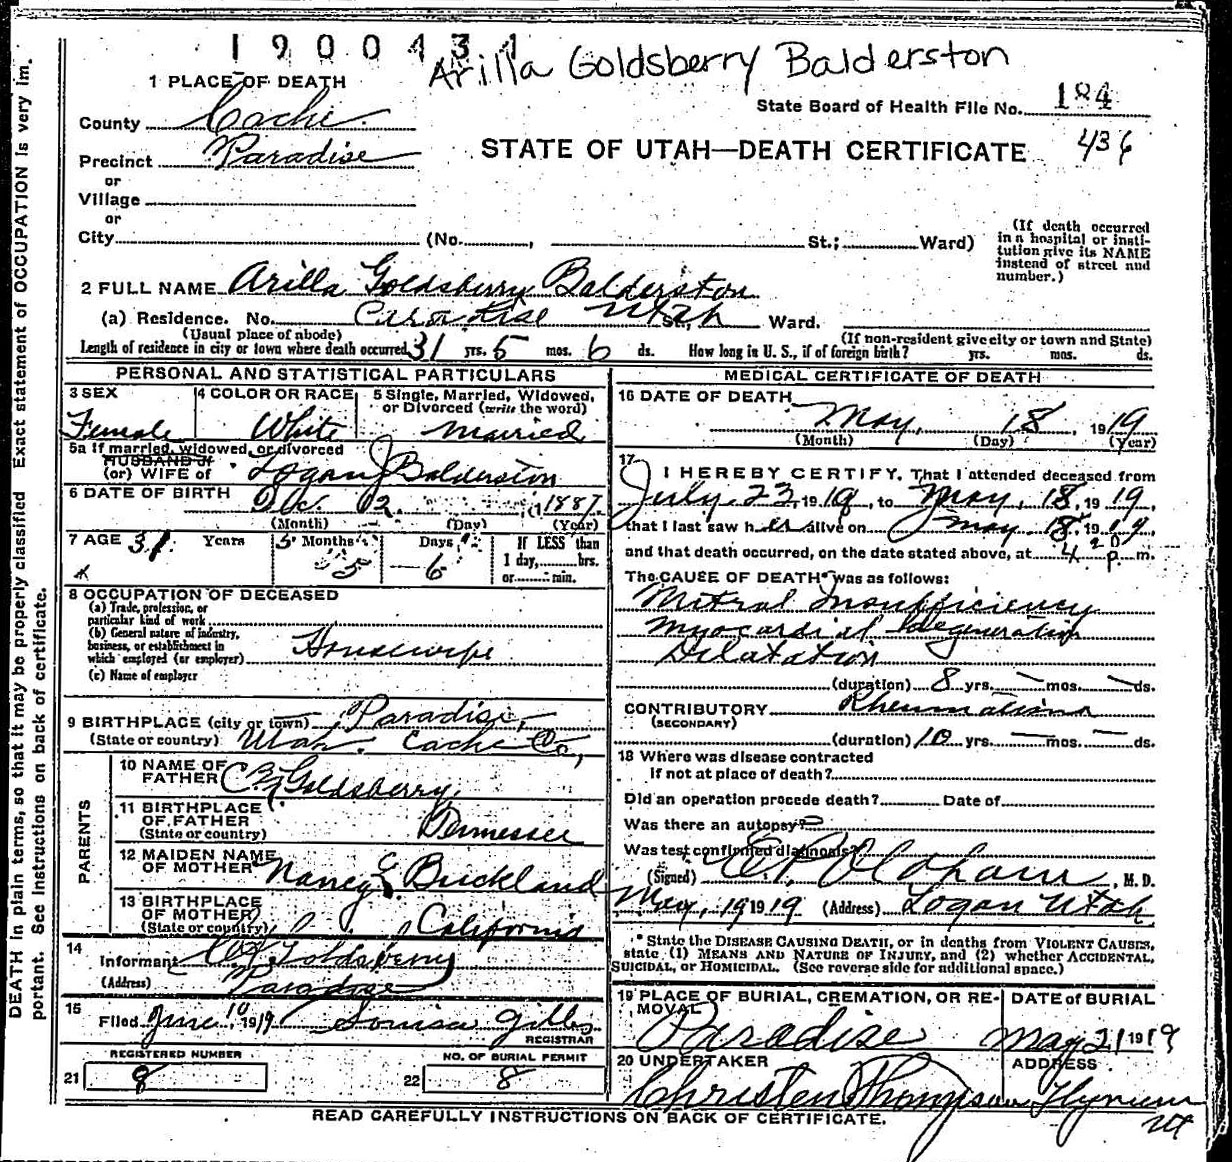 1900431
Arilla Goldsberry Balderston
1 PLACE OF DEATH
State Board of Health File No. 184
County Cache
STATE OF UTAH—DEATH CERTIFICATE 436
Precinct Paradise
or
Village
or
City (No. , St.; Ward)
(If death occurred in a hospital or insti-
tution give its NAME
instead of street and
number.)
2 FULL NAME Arilla Goldsberry Balderston
(a) Residence. No. Paradise Utah St., Ward.
(Usual place of abode) (If non-resident give city or town and State)
Length of residence in city or town where death occurred 31 yrs. 5 mos. 6 ds. How long in U. S., if of foreign birth? yrs. mos. ds.
PERSONAL AND STATISTICAL PARTICULARS
3 SEX
Female
4 COLOR OR RACE
White
5 Single, Married, Widowed,
or Divorced (write the word)
Married
5a If married, widowed, or divorced
HUSBAND of
(or) WIFE of Logan J Balderston
6 DATE OF BIRTH Dec. 12. 1887.
(Month) (Day) (Year)
7 AGE 31 Years 5 Months 5 Days 6
If LESS than
1 day, hrs.
or min.
8 OCCUPATION OF DECEASED
(a) Trade, profession, or
particular kind of work
(b) General nature of industry,
business, or establishment in
which employed (or employer) Housewife
(c) Name of employer
9 BIRTHPLACE (city or town) Paradise,
(State or country) Utah. Cache Co,
PARENTS
10 NAME OF
FATHER Goldsberry.
11 BIRTHPLACE
OF FATHER
(State or country) Tennessee
12 MAIDEN NAME
OF MOTHER Nancy E Brickland
13 BIRTHPLACE
OF MOTHER
(State or country) California
14
Informant Goldsberry
(Address) Paradise
15
Filed June 10 1919 Louisa Gibbs
REGISTRAR
REGISTERED NUMBER
21 8
NO. OF BURIAL PERMIT
22 8
MEDICAL CERTIFICATE OF DEATH
16 DATE OF DEATH
May, 18, 1919
(Month) (Day) (Year)
17
I HEREBY CERTIFY, That I attended deceased from
July 23, 1918, to May, 18, 1919,
that I last saw her alive on May 18, 1919
and that death occurred, on the date stated above, at 4 20 p. m.
The CAUSE OF DEATH* was as follows:
Mitral Insufficiency
Myocardial Degeneration
Dilatation
(duration) 8 yrs. — mos. — ds.
CONTRIBUTORY Rheumatism
(SECONDARY)
(duration) 10 yrs. — mos. — ds.
18 Where was disease contracted
if not at place of death?
Did an operation precede death? Date of
Was there an autopsy?
Was test confirmed diagnosis?
(Signed) , M. D.
May, 19 1919 (Address) Logan Utah
* State the DISEASE CAUSING DEATH, or in deaths from VIOLENT CAUSES,
state (1) MEANS AND NATURE OF INJURY, and (2) whether ACCIDENTAL,
SUICIDAL, or HOMICIDAL. (See reverse side for additional space.)
19 PLACE OF BURIAL, CREMATION, OR RE-
MOVAL
Paradise
DATE of BURIAL
May 21 1919
20 UNDERTAKER
Christen Thompson
ADDRESS
Hyrum
Ut
READ CAREFULLY INSTRUCTIONS ON BACK OF CERTIFICATE.
DEATH in plain terms, so that it may be properly classified Exact statement of OCCUPATION is very im.
portant. See instructions on back of certificate.